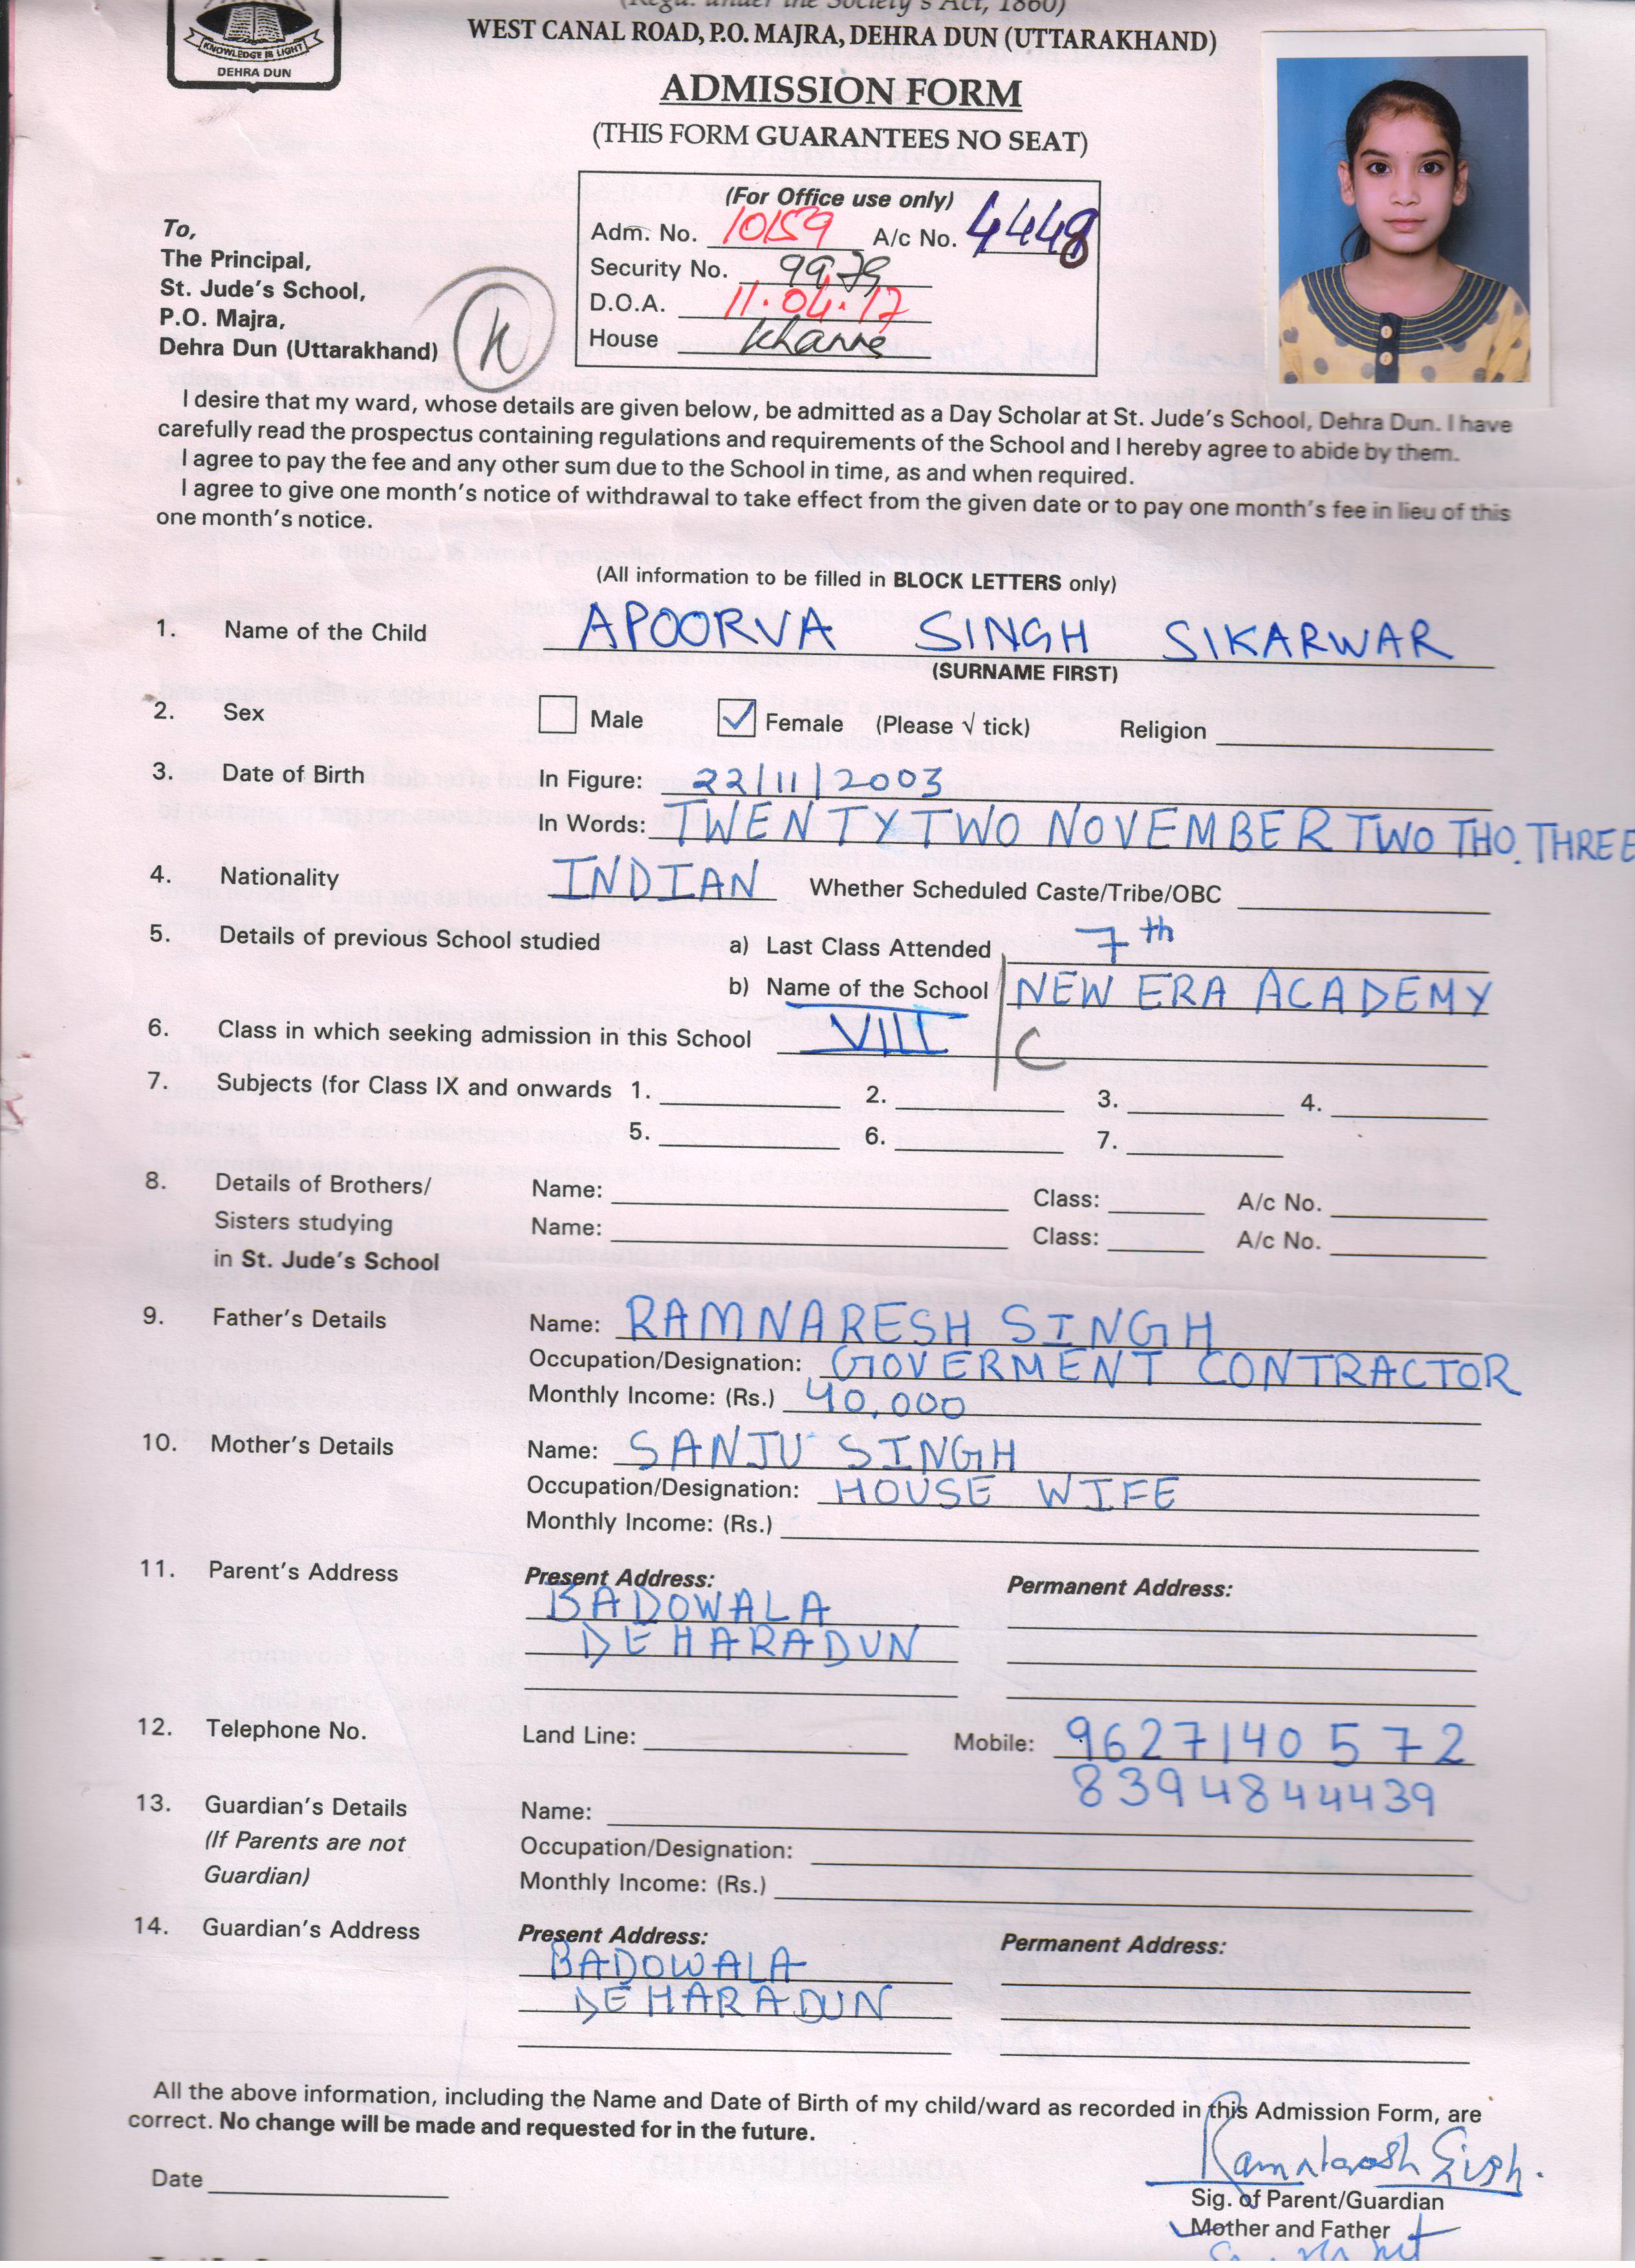 (Regd. under the Society's Act, 1860)
WEST CANAL ROAD, P.O. MAJRA, DEHRA DUN (UTTARAKHAND)
KNOWLEDGE IS LIGHT
DEHRA DUN
ADMISSION FORM
(THIS FORM GUARANTEES NO SEAT)
(For Office use only)
Adm. No. 10159 A/c No. 4448
Security No. 9979
D.O.A. 11.04.17
House
To,
The Principal,
St. Jude's School,
P.O. Majra,
Dehra Dun (Uttarakhand)
I desire that my ward, whose details are given below, be admitted as a Day Scholar at St. Jude's School, Dehra Dun. I have
carefully read the prospectus containing regulations and requirements of the School and I hereby agree to abide by them.
I agree to pay the fee and any other sum due to the School in time, as and when required.
I agree to give one month's notice of withdrawal to take effect from the given date or to pay one month's fee in lieu of this
one month's notice.
(All information to be filled in BLOCK LETTERS only)
1. Name of the Child APOORVA SINGH SIKARWAR
(SURNAME FIRST)
2. Sex Male ✓ Female (Please √ tick) Religion
3. Date of Birth In Figure: 22/11/2003
In Words: TWENTY TWO NOVEMBER TWO THO. THREE
4. Nationality INDIAN Whether Scheduled Caste/Tribe/OBC
5. Details of previous School studied a) Last Class Attended 7th
b) Name of the School NEW ERA ACADEMY
6. Class in which seeking admission in this School VIII C
7. Subjects (for Class IX and onwards 1. 2. 3. 4.
5. 6. 7.
8. Details of Brothers/ Name: Class: A/c No.
Sisters studying Name: Class: A/c No.
in St. Jude's School
9. Father's Details Name: RAMNARESH SINGH
Occupation/Designation: GOVERMENT CONTRACTOR
Monthly Income: (Rs.) 40,000
10. Mother's Details Name: SANJU SINGH
Occupation/Designation: HOUSE WIFE
Monthly Income: (Rs.)
11. Parent's Address Present Address: Permanent Address:
BADOWALA
DEHARADUN
12. Telephone No. Land Line: Mobile: 9627140572
8394844439
13. Guardian's Details Name:
(If Parents are not Occupation/Designation:
Guardian) Monthly Income: (Rs.)
14. Guardian's Address Present Address: Permanent Address:
BADOWALA
DEHARADUN
All the above information, including the Name and Date of Birth of my child/ward as recorded in this Admission Form, are
correct. No change will be made and requested for in the future.
Date
Sig. of Parent/Guardian
Mother and Father